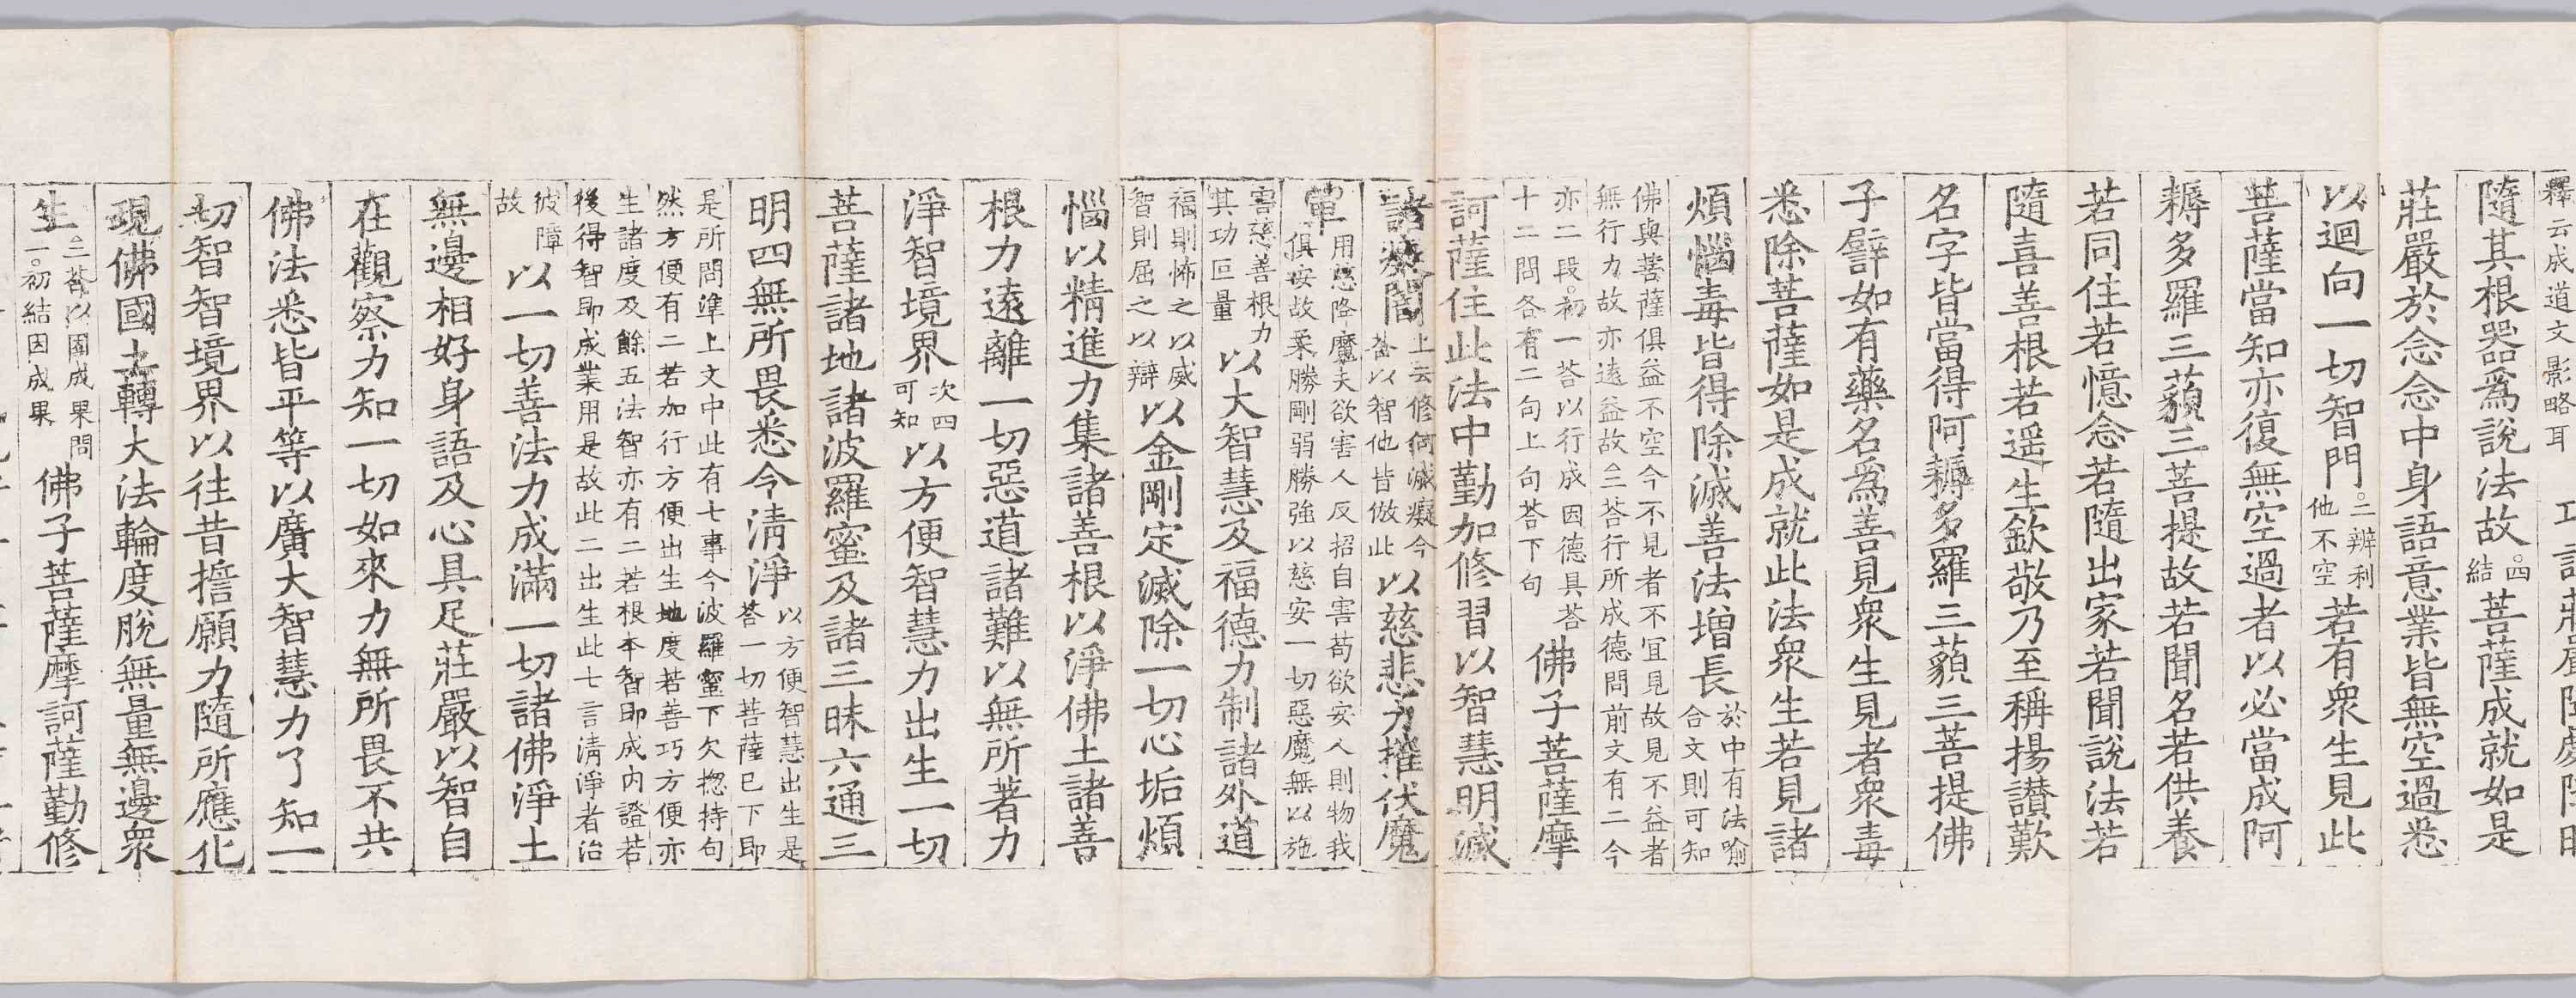 釋云成道文影略耳
隨其根器爲說法故
四
結
菩薩成就如是
莊嚴於念念中身語意業皆無空過悉
以迴向一切智門
三辨利
他不空
若有衆生見此
菩薩當知亦復無空過者以必當成阿
耨多羅三藐三菩提故若聞名若供養
若同住若憶念若隨出家若聞說法若
隨喜善根若遥生欽敬乃至稱揚讃歎
名字皆當得阿耨多羅三藐三菩提佛
子譬如有藥名爲善見衆生見者衆毒
悉除菩薩如是成就此法衆生若見諸
煩惱毒皆得除滅善法增長
於中有法喻
合文則可知
佛與菩薩俱益不空今不見者不宜見故見不益者
無行力故亦遠益故三荅行所成德問前文有二今
亦二段初一荅以行成因德具荅
十二問各有二句上句荅下句
佛子菩薩摩
訶薩住此法中勤加修習以智慧明滅
諸癡闇
上云修何滅癡今
荅以智他皆倣此
以慈悲力摧伏魔
軍
用慈降魔夫欲害人反招自害苟欲安人則物我
俱安故柔勝剛弱勝強以慈安一切惡魔無以施
害慈善根力
其功叵量
以大智慧及福德力制諸外道
福則怖之以威
智則屈之以辯
以金剛定滅除一切心垢煩
惱以精進力集諸善根以淨佛土諸善
根力遠離一切惡道諸難以無所著力
淨智境界
次四
可知
以方便智慧力出生一切
菩薩諸地諸波羅蜜及諸三昧六通三
明四無所畏悉令清淨
以方便智慧出生是
荅一切菩薩已下即
是所問準上文中此有七事今波羅蜜下欠揔持句
然方便有二若加行方便出生地度若善巧方便亦
生諸度及餘五法智亦有二若根本智即成内證若
後得智即成業用是故此二出生此七言清淨者治
彼障
故
以一切善法力成滿一切諸佛淨土
無邊相好身語及心具足莊嚴以智自
在觀察力知一切如來力無所畏不共
佛法悉皆平等以廣大智慧力了知一
切智智境界以往昔擔願力隨所應化
現佛國土轉大法輪度脫無量無邊衆
生
二荅以因成果問
一初結因成果
佛子菩薩摩訶薩勤修